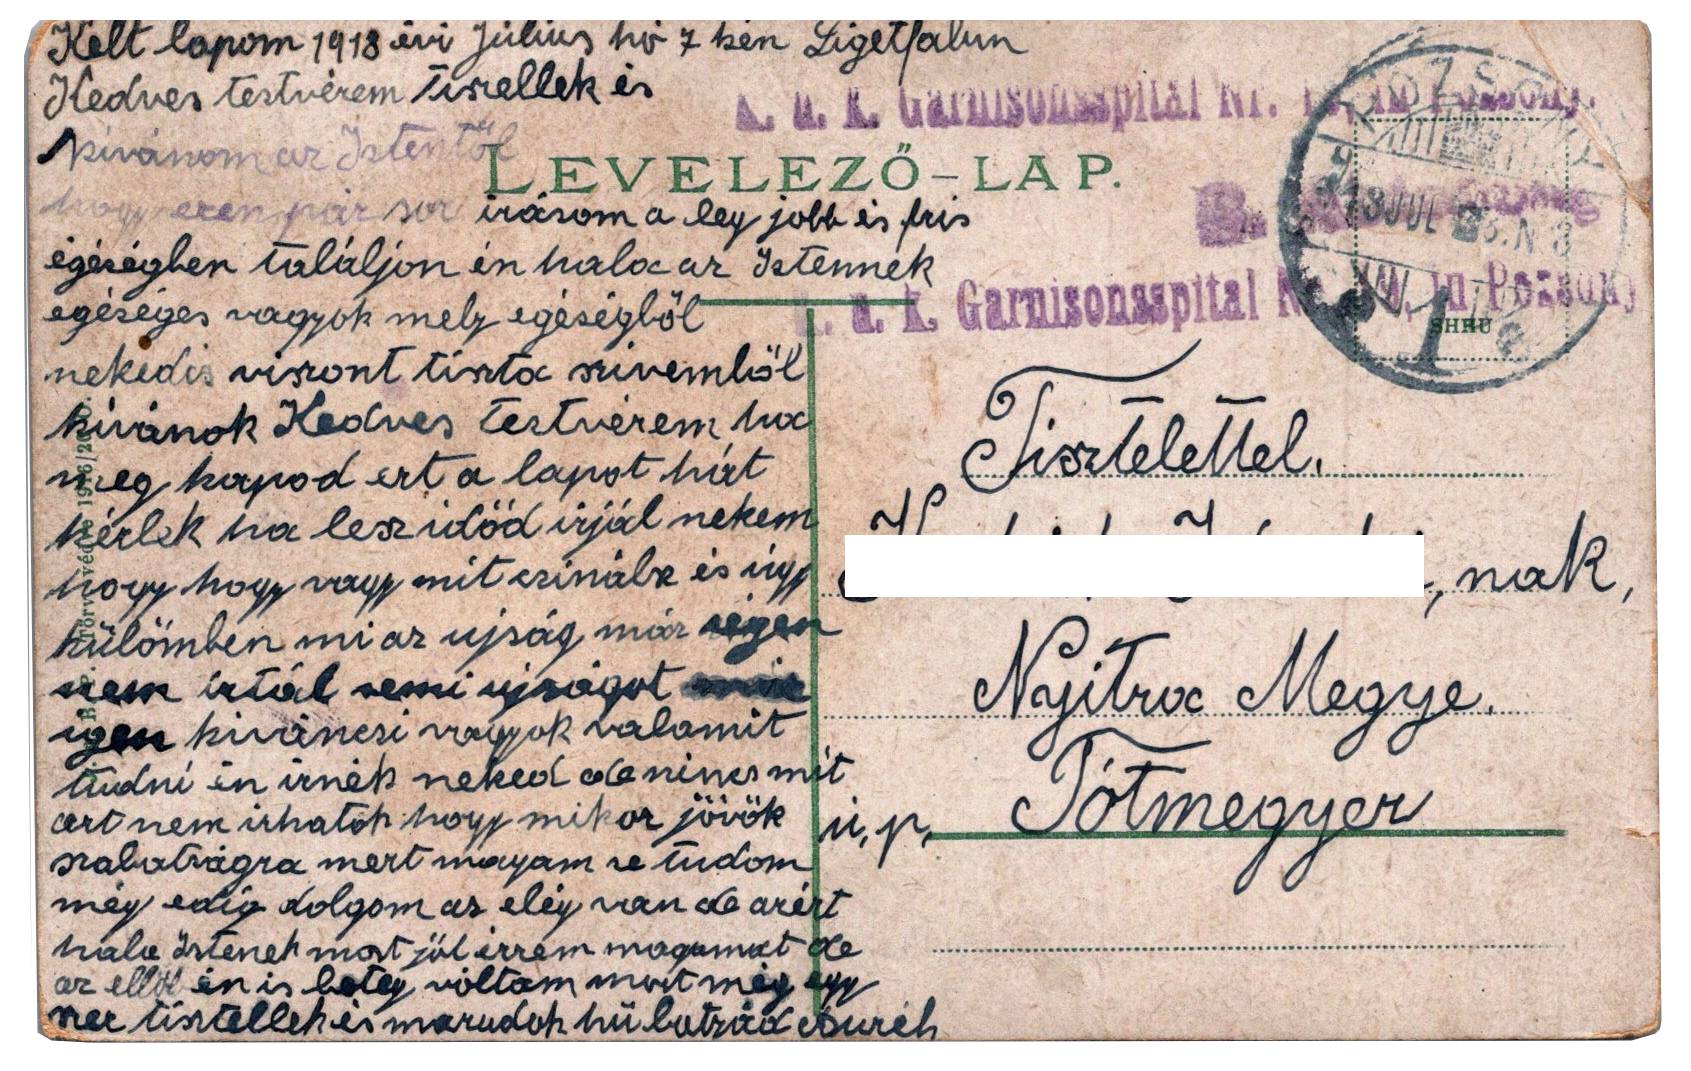 Kelt lapom 1918 évi Július hó 7 kén Ligetfalun
Kedves testvérem tiszellek és
kivánom az Istentől
hogy ezen pár sor irásom a leg jobb és fris
égéségben találjon én hala az Istennek
egéséges vagyok mely egéségből
nekedis viszont tiszta szivemből
kivánok Kedves testvérem ha
meg kapod ezt a lapot hát
kérlek ha lesz időd irjál nekem
hogy hogy vagy mit czinálsz és úgy
külömben mi az ujság már régen
nem irtál semi ujságot
igen kiváncsi vagyok valamit
tudni én irnék neked de nincs mit
azt nem irhatok hogy mikor jövök
szabatságra mert magam se tudom
még edig dolgom az elég van de azért
hala Istenek most jól érzem magamat de
az ellőt én is beteg voltam most még egy
szer tisztellek és maradok hü batzád
LEVELEZŐ-LAP.
k. u. k. Garnisonsspital Nr. in Pozsony.
k. u. k. Garnisonsspital Nr. in Pozsony
POZSONY
918 JUL
SHEU
Tisztelettel.
nak,
Nyitra Megye.
Tótmegyer
u, p,